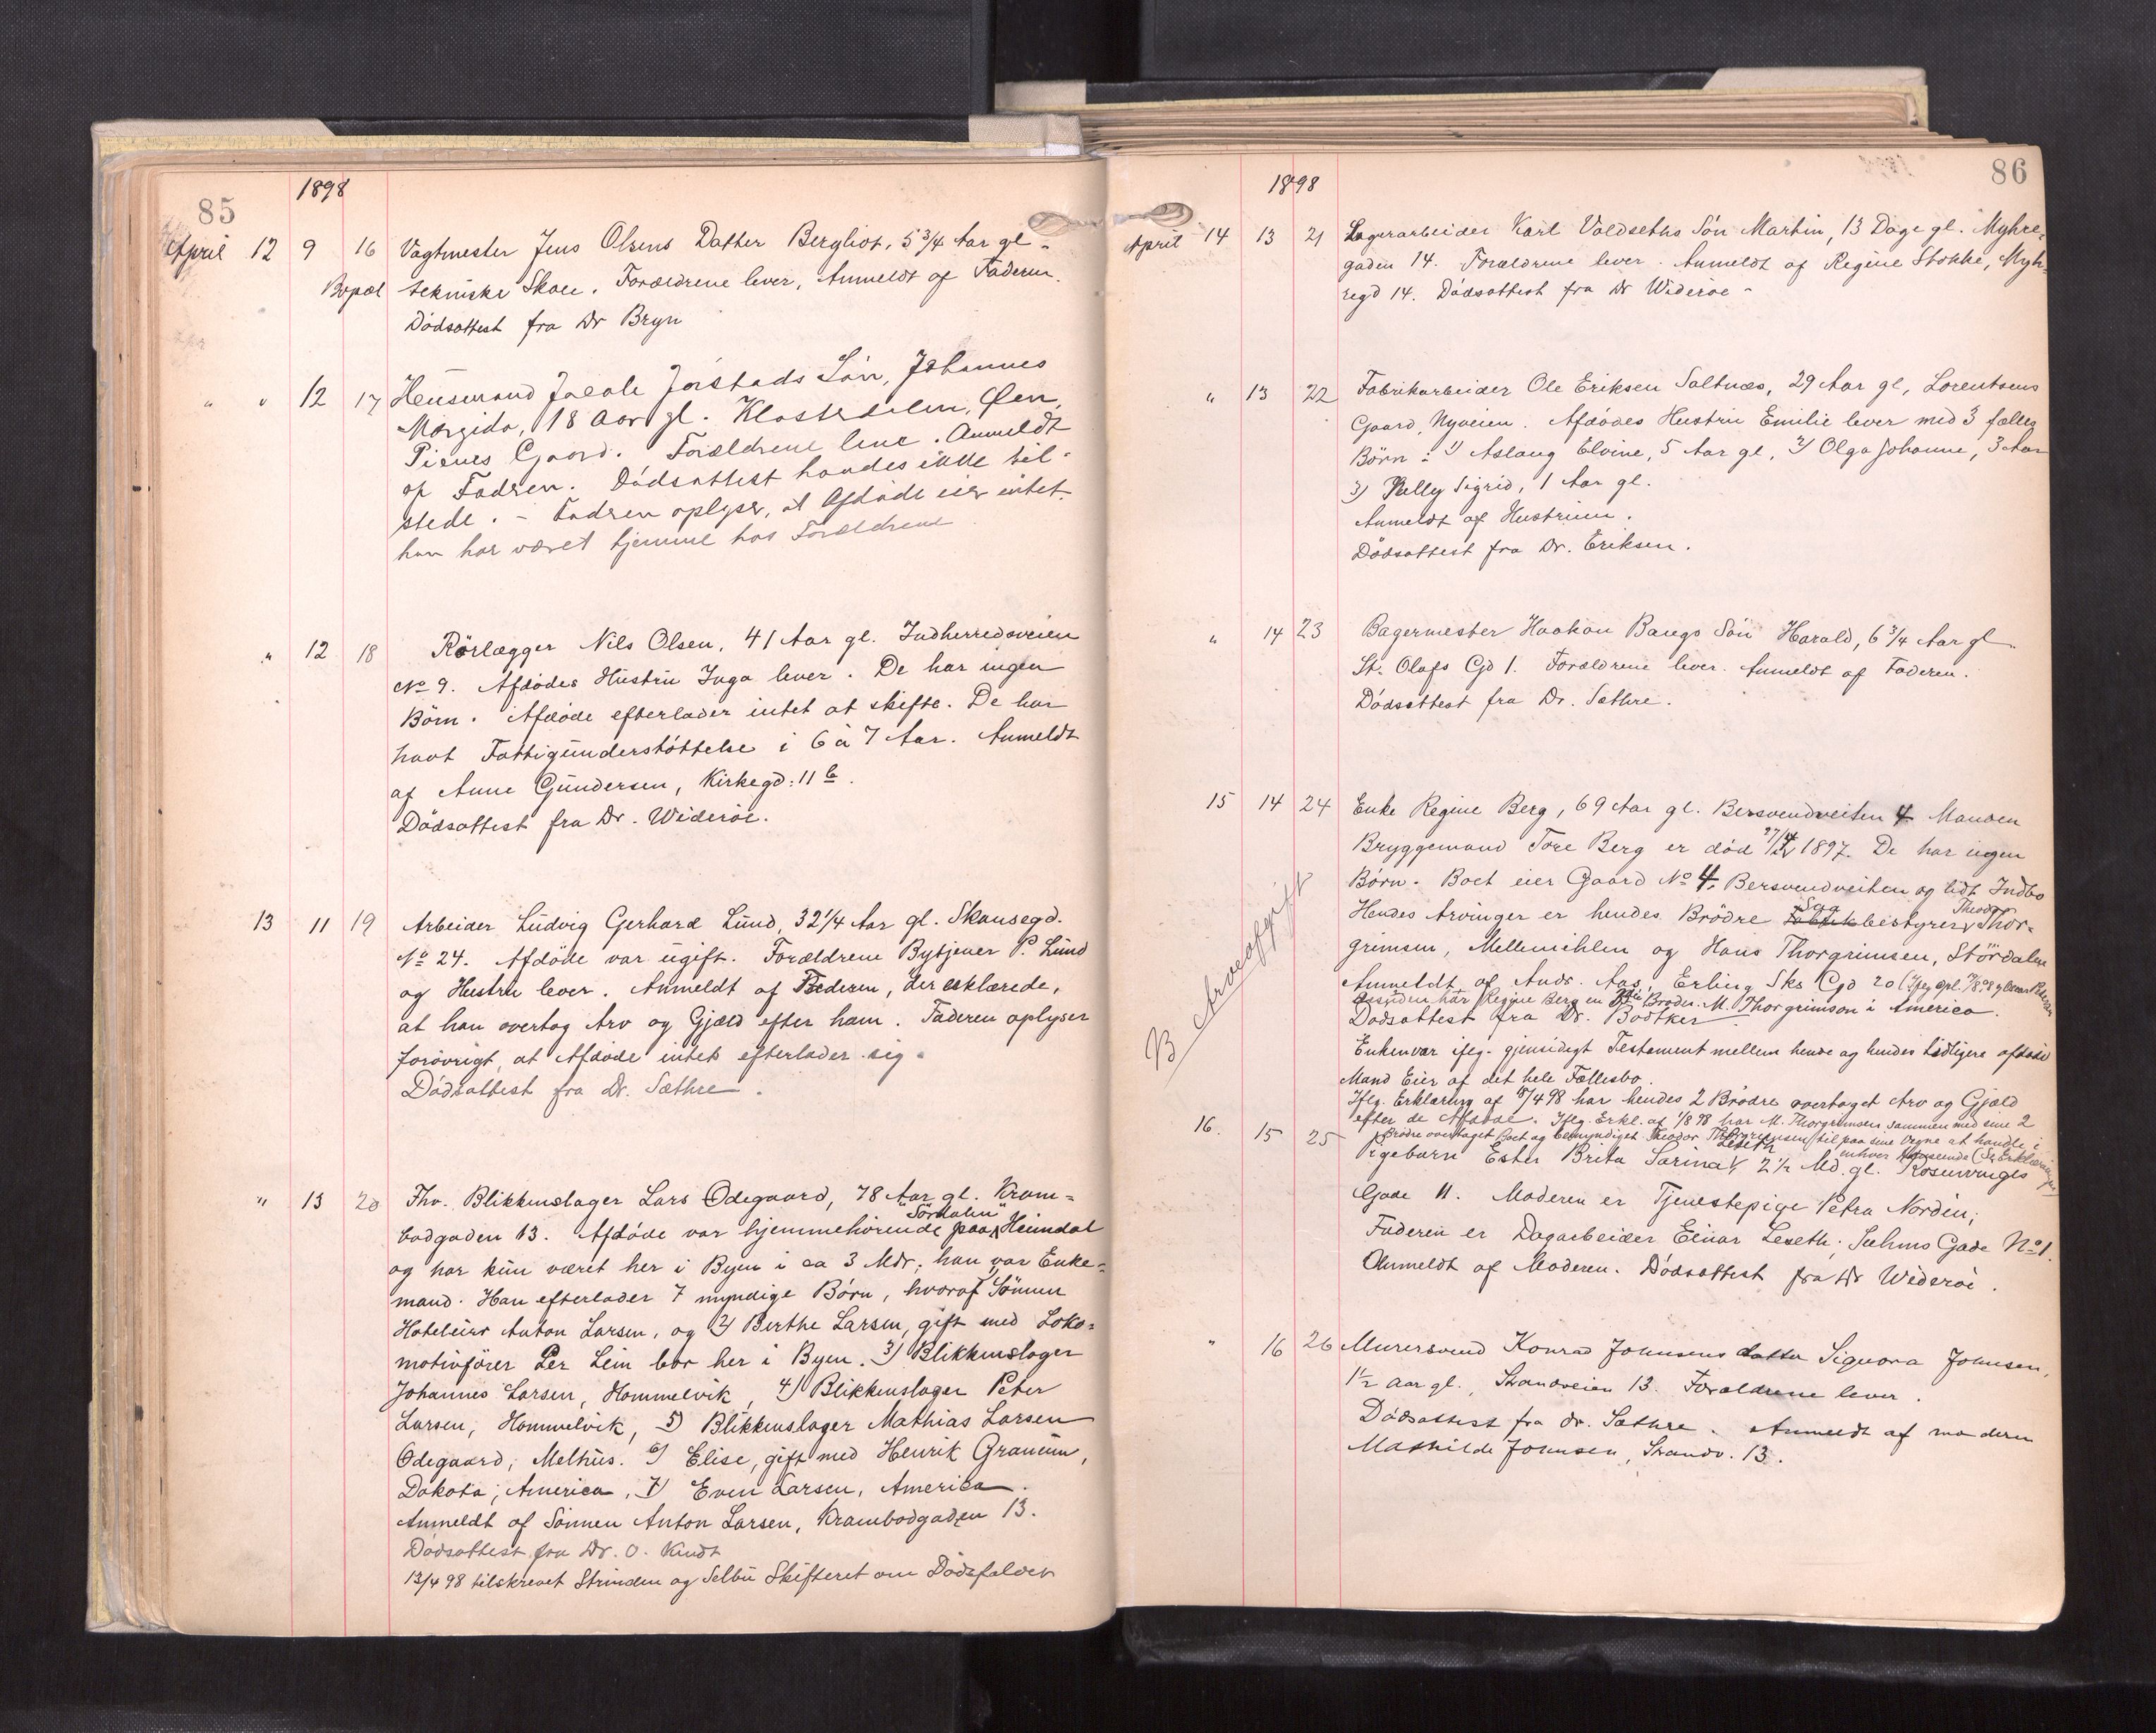 85
1898
April 12 9 16 Vagtmester Jens Olsens Datter Bergliot, 5 3/4 Aar gl.
Bopæl tekniske Skole. Forældrene lever, Anmeldt af Faderen.
Dödsattest fra Dr Bryn
" " 12 17 Husmand Jacob Jørstads Sön, Johannes
Margido, 18 Aar gl. Klosterdalen, Øen,
Gaard. Forældrene leve. Anmeldt
af Fadren. Dödsattest havdes ikke til-
stede. - Fadren oplyser, at Afdöde eier intet
han har været hjemme hos Forældrene
" 12 18 Rörlægger Nils Olsen, 41 Aar gl. Indherredsveien
No 9. Afdödes Hustru Inga lever. De har ingen
Börn. Afdöde efterlader intet at skifte. De har
havt Fattigunderstöttelse i 6 à 7 Aar. Anmeldt
af Anne Gundersen, Kirkegd: 11 b.
Dödsattest fra Dr. Wideröe.
13 11 19 Arbeider Ludvig Gerhard Lund, 32 1/4 Aar gl. Skansegd.
No 24. Afdöde var ugift. Forældrene Bytjener P. Lund
og Hustru lever. Anmeldt af Faderen, der erklærede,
at han overtog Arv og Gjæld efter ham. Faderen oplyser
forövrigt, at Afdöde intet efterlader sig.
Dödsattest fra Dr. Sæthre.
" 13 20 Fhv. Blikkenslager Lars Ödegaard, 78 Aar gl. Kram=
bodgaden 13. Afdöde var hjemmehörende paa "Sördalen" Heimdal
og har kun været her i Byen i ca 3 Mdr; han var Enke=
mand. Han efterlader 7 myndige Börn, hvoraf 1) Sönnen
Hoteleier Anton Larsen, og 2) Berthe Larsen, gift med Loko=
motivförer Per Lein bor her i Byen. 3) Blikkenslager
Johannes Larsen, Hommelvik, 4) Blikkenslager Peter
Larsen, Hommelvik, 5) Blikkenslager Mathias Larsen
Ödegaard, Melhus. 6) Elise, gift med Henrik Granum,
Dakota, America, 7) Even Larsen, America.
Anmeldt af Sönnen Anton Larsen, Krambodgaden 13.
Dödsattest fra Dr. O. Kindt
13/4 98 tilskrevet Strinden og Selbu Skifteret om Dödsfaldet
86
1898
April 14 13 21 Lagerarbeider Karl Voldseths Sön Martin, 13 Dage gl. Myhre=
gaden 14. Forældrene lever. Anmeldt af Regine Stokke, Myh=
regd 14. Dödsattest fra Dr Wideröe
" 13 22 Fabrikarbeider Ole Eriksen Saltnæs, 29 Aar gl, Lorentsens
Gaard, Nyveien. Afdödes Hustru Emilie lever med 3 fælles
Börn: 1) Aslaug Elvine, 5 Aar gl, 2) Olga Johanne, 3 Aar
3) Sigrid, 1 Aar gl.
Anmeldt af Hustruen.
Dödsattest fra Dr. Eriksen.
" 14 23 Bagermester Haakon Bangs Sön Harald, 6 3/4 Aar gl
St. Olafs Gd 1. Forældrene lever. Anmeldt af Faderen.
Dödsattest fra Dr. Sæthre.
15 14 24 Enke Regine Berg, 69 Aar gl. Bersvendveiten 4 Manden
Bryggemand Tore Berg er död 27/12 1897. De har ingen
Börn. Boet eier Gaard No 4. Bersvendveiten og lidt Indbo
Hendes Arvinger er hendes Brödre Sagbestyrer Theodor Thor=
grimsen, Mellemihlen og Hans Thorgrimsen, Stördalen
Anmeldt af Andr. Aas, Erling Sks Gd 20
Desuden har Regine Berg en Broder M. Thorgrimson i America.
Dödsattest fra Dr. Bödtker
Enken var ifög. gjensidigt Testament mellem hende og hendes tidligere afdöde
Mand Eier af det hele Fællesbo.
Iflg. Erklæring af 18/4 98 har hendes 2 Brödre overtaget Arv og Gjæld
efter de Afdöde. Iflg. Erkl. af 1/8 98 har M. Thorgrimsen sammen med sine 2
Brödre overtaget Boet og bemyndiget Theodor Thorgrimsen til paa sine Vegne at handle i
enhver Henseende (Se Erklæringen
B Arveafgift
16. 15 25 Pigebarn Ester Brita Sarina Leseth 2 1/2 Md. gl. Rosenvinges
Gade 11. Moderen er Tjenestepige Petra Nordin;
Faderen er Dagarbeider Einar Leseth, Suhms Gade No 1.
Anmeldt af Moderen. Dödsattest fra Dr Wideröe.
" 16 26 Murersvend Konrad Johnsens datter Signora Johnsen,
1 1/2 Aar gl. Strandveien 13. Forældrene lever.
Dödsattest fra Dr. Sæthre. Anmeldt af moderen
Mathilde Johnsen, Strandv. 13.